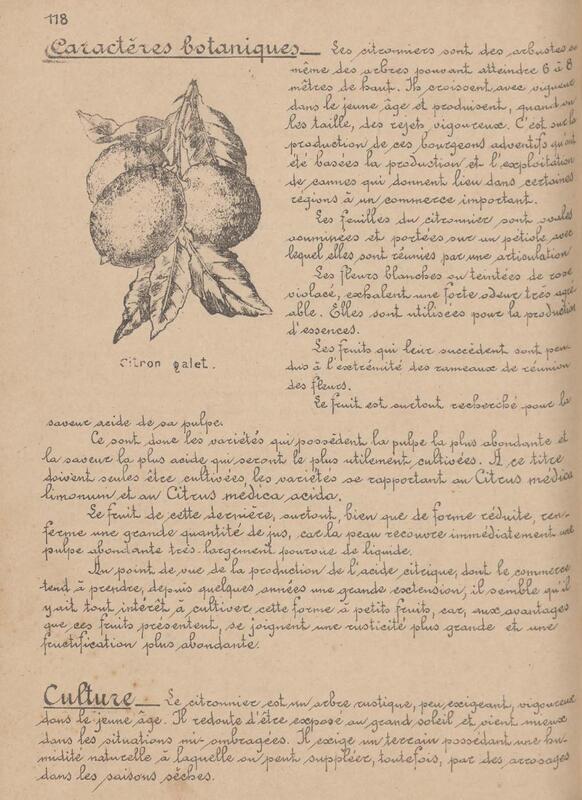 118
Caractères botaniques_ Les citronniers sont des arbustes
même des arbres pouvant atteindre 6 à 8
mètres de haut. Ils croissent avec vigueur
dans le jeune âge et produisent, quand on
les taille, des rejets vigoureux. C'est sur la
production de ces bourgeons adventifs qu'ont
été basées la production et l'exploitation
de cannes qui donnent lieu dans certaines
régions à un commerce important.
Les feuilles du citronnier sont ovales
acuminées et portées sur un pétiole avec
lequel elles sont réunies par une articulation
Les fleurs blanches ou teintées de rose
violacé, exhalent une forte odeur très agré
able. Elles sont utilisées pour la production
d'essences.
Les fruits qui leur succèdent sont pen-
dus à l'extrémité des rameaux de réunion
des fleurs.
Le fruit est surtout recherché pour la
Citron galet.
saveur acide de sa pulpe.
Ce sont donc les variétés qui possèdent la pulpe la plus abondante et
la saveur la plus acide qui seront le plus utilement cultivées. A ce titre
doivent seules être cultivées les variétés se rapportant au Citrus médica
limonum et au Citrus médica acida.
Le fruit de cette dernière, surtout, bien que de forme réduite, ren-
ferme une grande quantité de jus, car la peau recouvre immédiatement une
pulpe abondante très largement pourvue de liquide.
Au point de vue de la production de l'acide citrique, dont le commerce
tend à prendre, depuis quelques années une grande extension, il semble qu'il
y ait tout intérêt à cultiver cette forme à petits fruits, car, aux avantages
que ces fruits présentent, se joignent une rusticité plus grande et une
fructification plus abondante.
Culture_ Le citronnier est un arbre rustique, peu exigeant, vigoureux
dans le jeune âge. Il redoute d'être exposé au grand soleil et vient mieux
dans les situations mi-ombragées. Il exige un terrain possédant une hu-
midité naturelle à laquelle on peut suppléer, toutefois, par des arrosages
dans les saisons sèches.